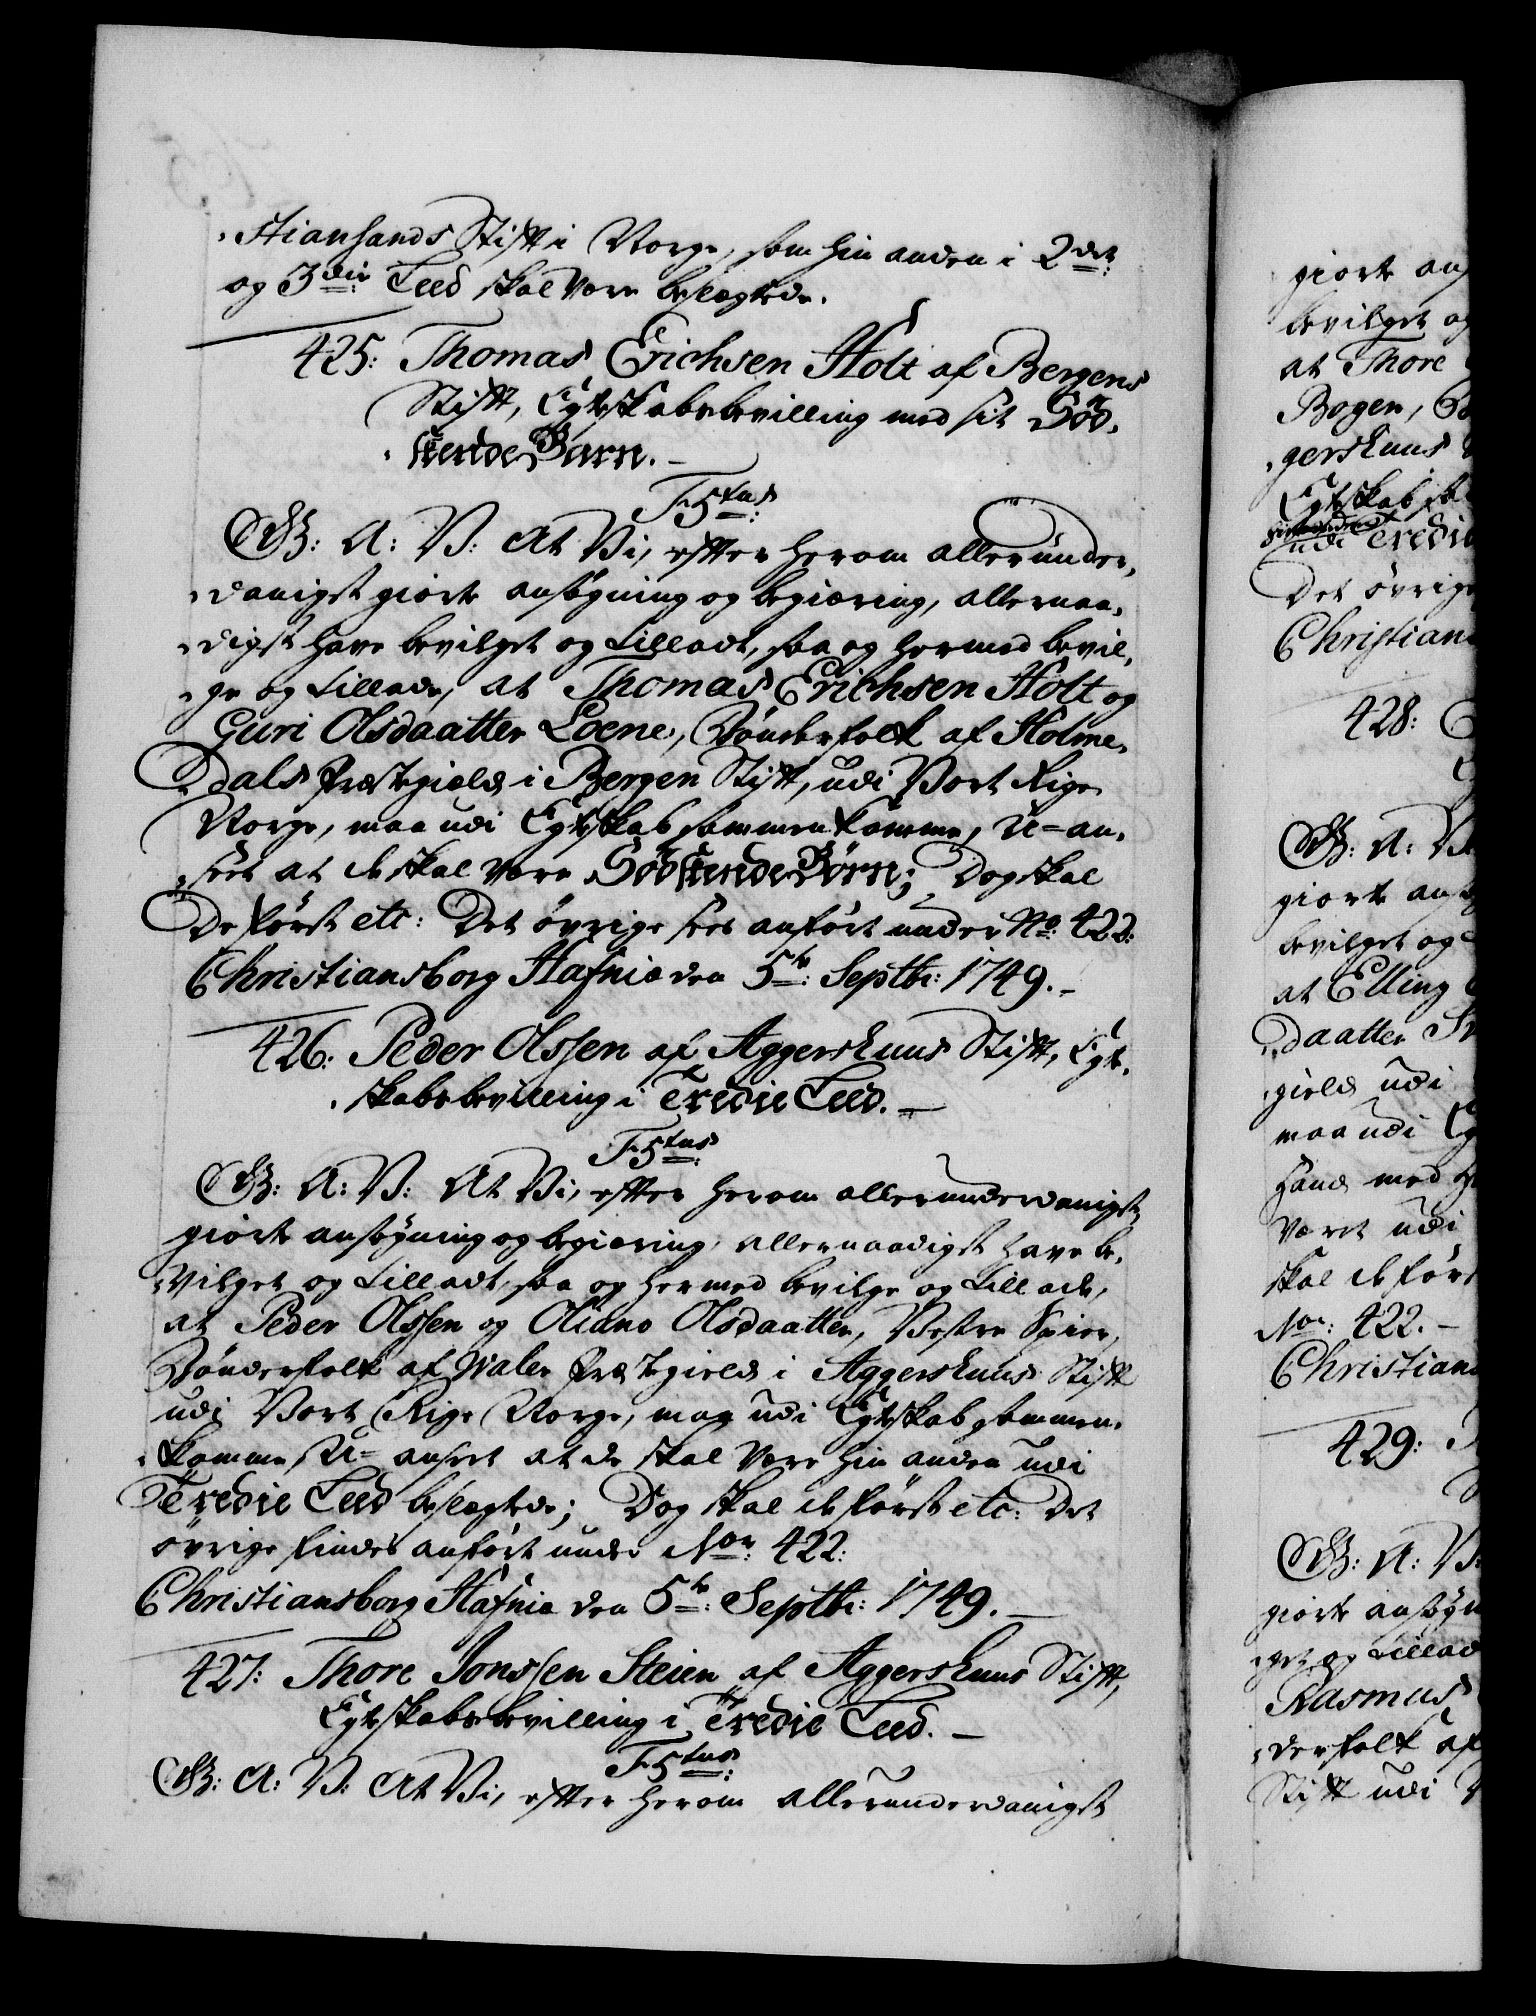 stiansands Stift i Norge, som hin anden i 2det
og 3die Leed skal være beslægtede.
425: Thomas Erichsen Holt af Bergens
Stift, Egteskabsbevilling med sit Sød-
skende Barn. -
F 5tus:
GB: A: V: At Vi, efter herom allerunder-
danigst giorte ansøgning og begiæring, allernaa-
digst have bevilget og tilladt, saa og hermed bevil-
ge og tillade, at Thomas Erichsen Holt og
Guri Olsdaatter Loene, Bønderfolk af Holme-
dals Præstegield i Bergen Stift, udi Vort Rige
Norge, maa udi Egteskab sammenkomme, U-an-
seet at de skal være Sødskende Børn; Dog skal
de først etc: Det øvrige sees anført under No: 422:
Christiansborg Hafniæ den 5te: Septbr: 1749. -
426: Peder Olssen af Aggershuus Stift, Egte-
skabsbevilling i Tredie Leed. -
F 5tus:
GB: A: V: At Vi, efter herom allerunderdanigst
giorte ansøgning og begiæring, allernaadigst have be-
vilget og tilladt, saa og hermed bevilge og tillade,
at Peder Olssen og Oliano Olsdaatter, Vestre Spier,
Bønderfolk af Waler Præstegield i Aggershuus Stift
udj Vort Rige Norge, maa udi Egteskab sammen-
komme, U-anseet at de skal være hin anden udi
Tredie Leed beslægtede; Dog skal de først etc: Det
øvrige findes anført under Nor: 422:
Christiansborg Hafniæ den 5te: Septbr: 1749. -
427: Thore Jonssen Steien af Aggershuus Stift,
Egteskabsbevilling i Tredie Leed. -
F 5tus:
GB: A: V: At Vi, efter herom allerunderdanigst
giorte ans
bevilget og
at Thore
Bogen,
gershuus
Egteskab
udi Tredie
Det øvrige
Christians
428:
GB: A: V:
giorte ans
bevilget og
at Elling
daatter
gield udi
maa udi Eg
hand med
været udi
skal de førs
Nor: 422. -
Christians
429:
GB: A: V:
giorte ansøgn
get og tillad
Rasmus
derfolk af
Stift udi V